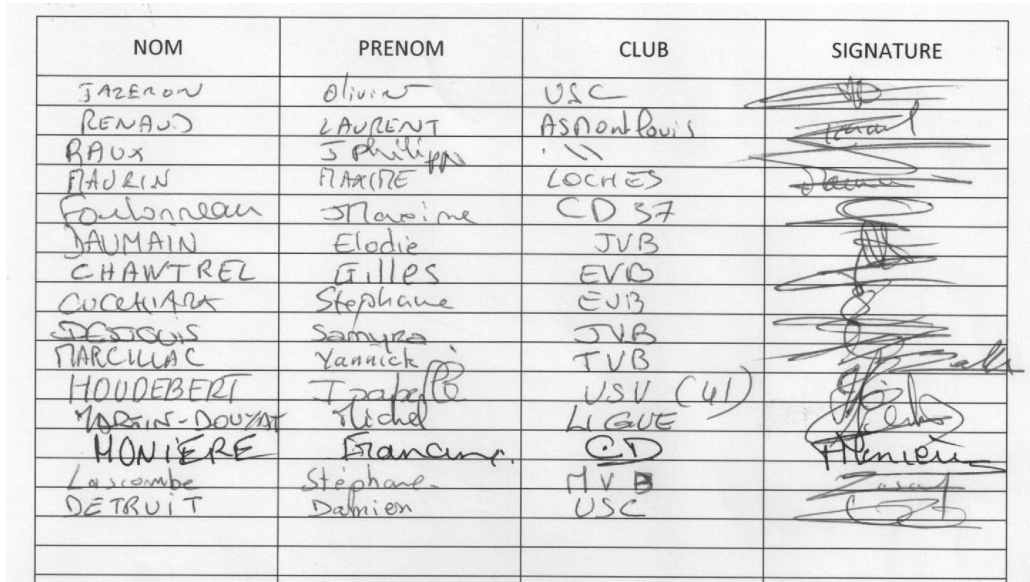 NOM PRENOM CLUB SIGNATURE
JAZERON Olivier USC
RENAUD LAURENT ASMontlouis
RAUX J Philippe "
MAURIN MAXIME LOCHES
Foulonneau JMaxime CD 37
DAUMAIN Elodie JVB
CHAWTREL Gilles EVB
CUCCHIARA Stéphane EVB
Samyra JVB
MARCILLAC Yannick TVB
HOUDEBERT Isabelle USV (41)
MARTIN-DOUYAT Michel LIGUE
MONIÈRE Francine CD
Lascombe Stéphane MVB
DETRUIT Damien USC